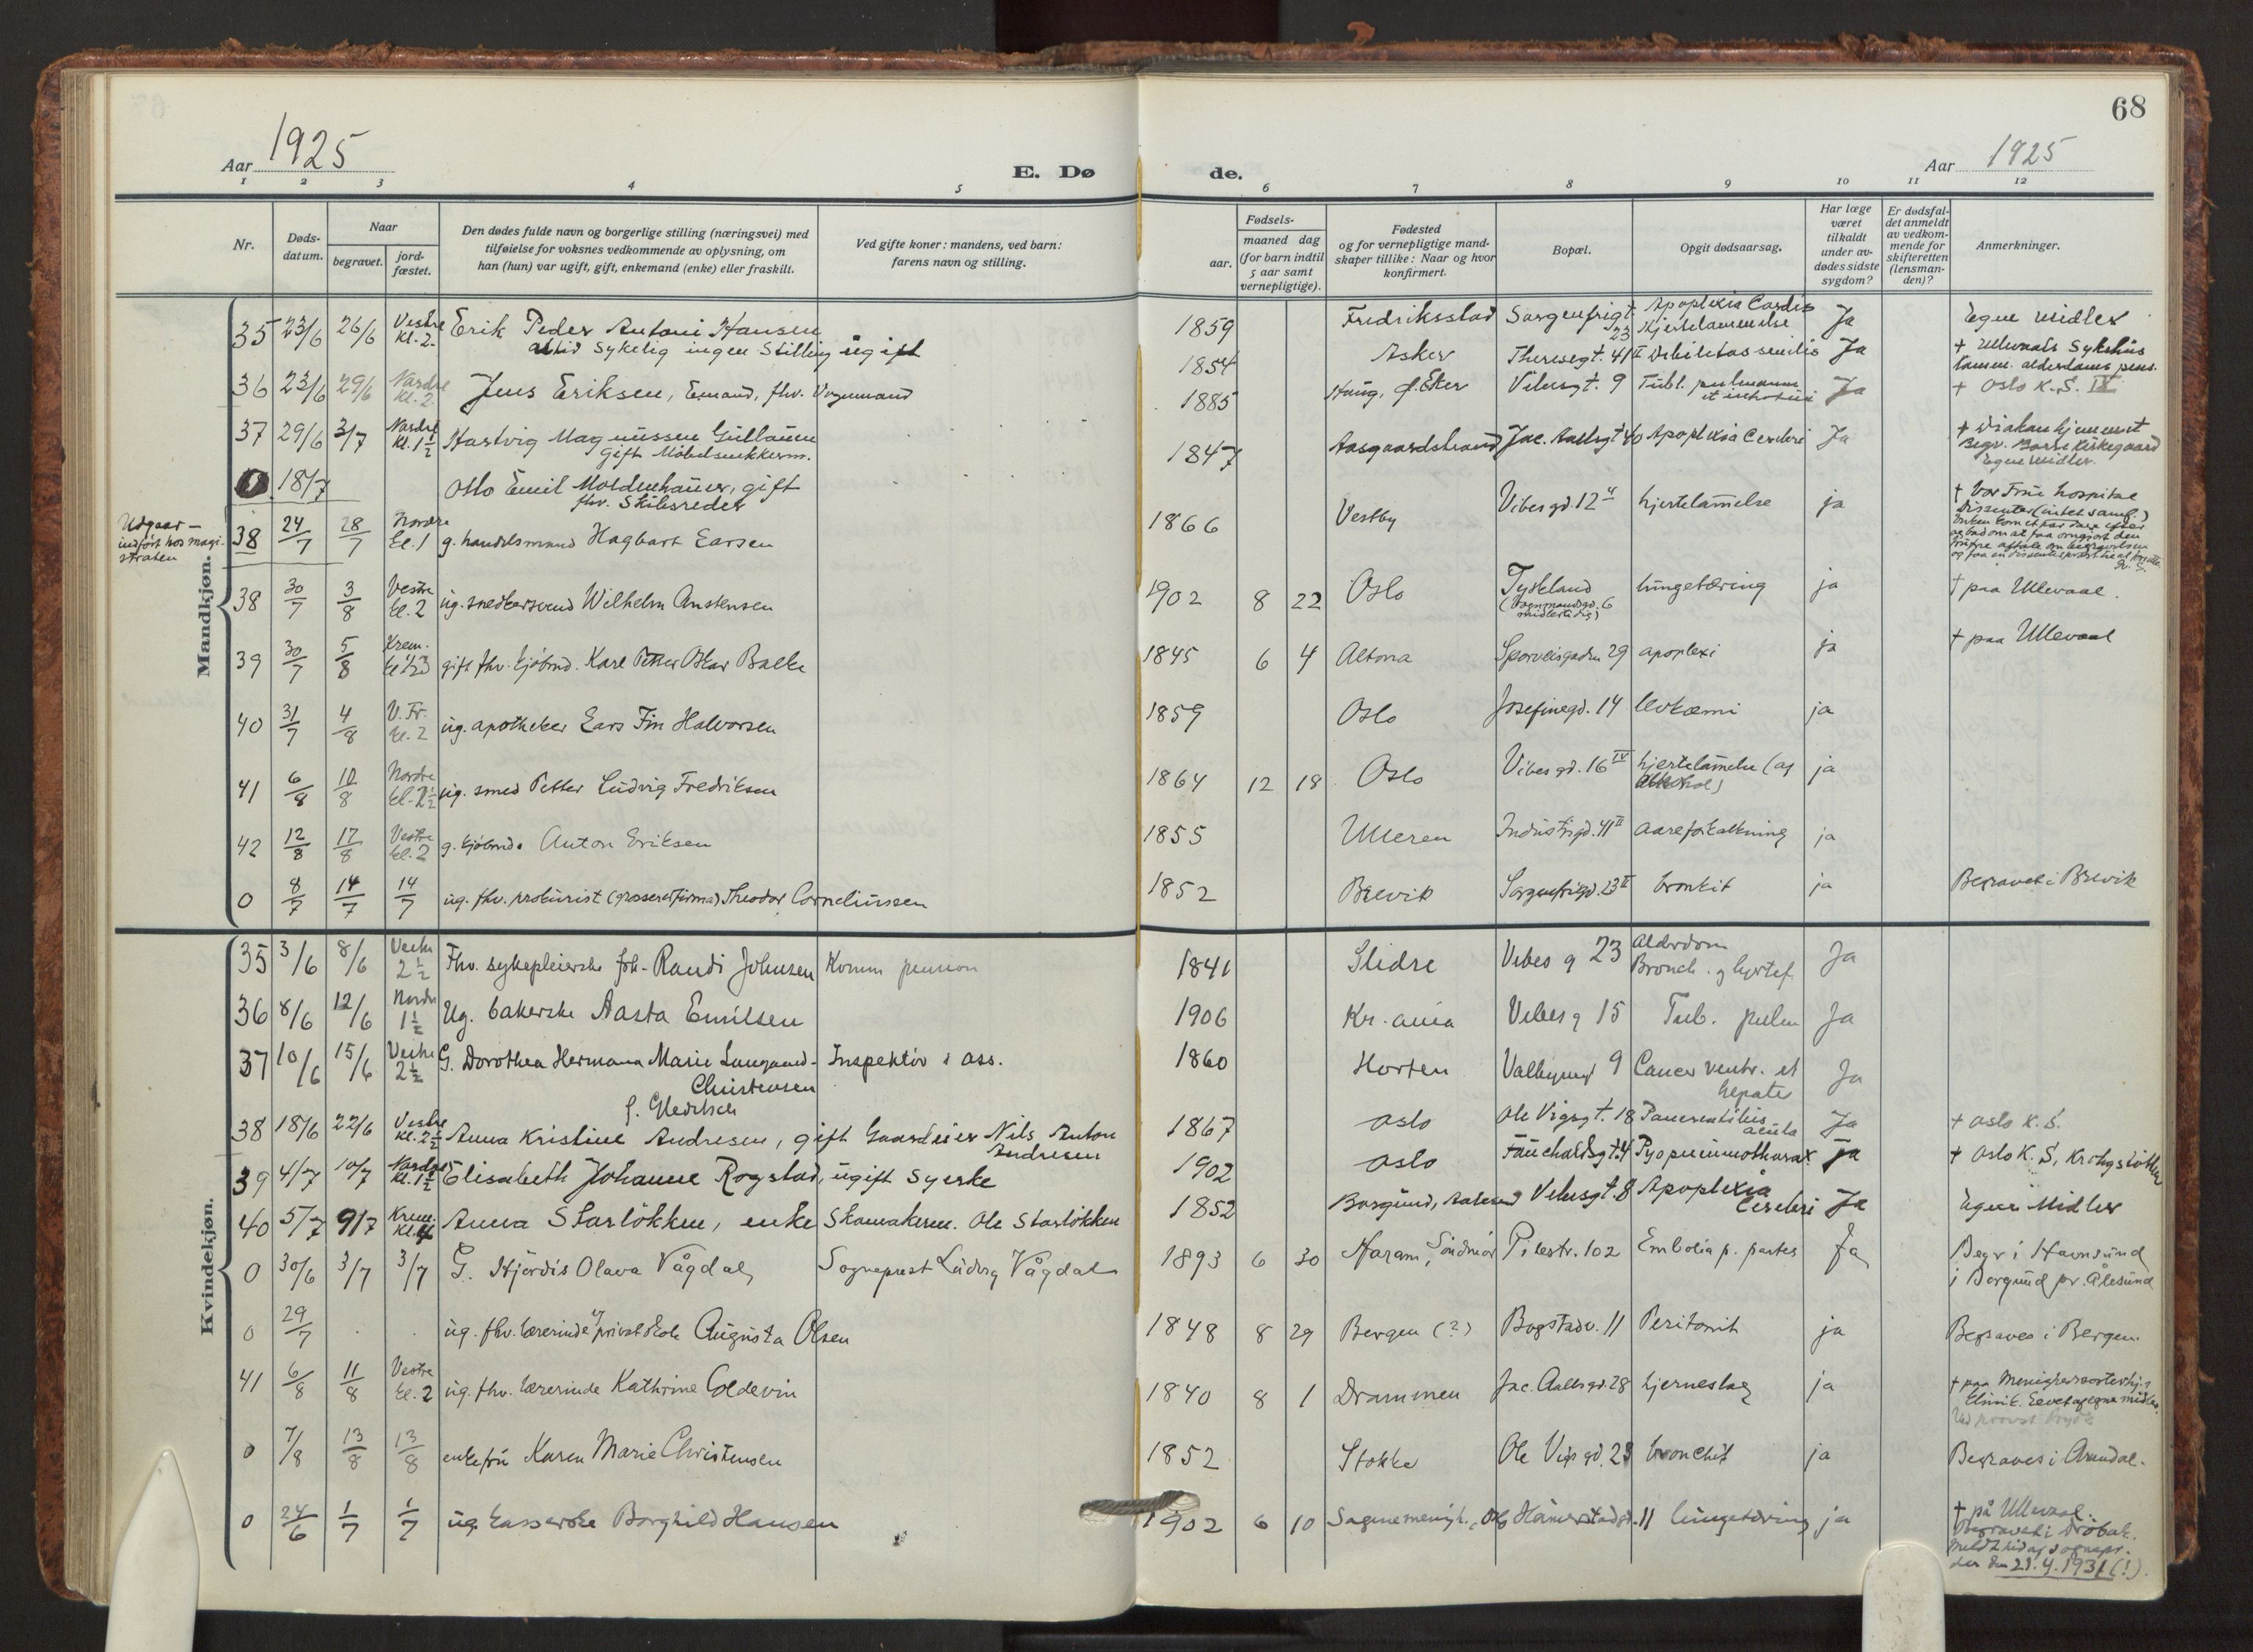 68
Aar 1925
E. Dø de.
Aar 1925
1 2 3 4 5 6 7 8 9 10 11 12
Nr.
Døds-
datum.
Naar
begravet.
jord-
fæstet.
Den dødes fulde navn og borgerlige stilling (næringsvei) med
tilføielse for voksnes vedkommende av oplysning, om
han (hun) var ugift, gift, enkemand (enke) eller fraskilt.
Ved gifte koner: mandens, ved barn:
farens navn og stilling.
Fødsels-
aar.
maaned dag
(for barn indtil
5 aar samt
vernepligtige).
Fødested
og for vernepligtige mand-
skaper tillike: Naar og hvor
konfirmert.
Bopæl.
Opgit dødsaarsag.
Har læge
været
tilkaldt
under av-
dødes sidste
sygdom?
Er dødsfal-
det anmeldt
av vedkom-
mende for
skifteretten
(lensman-
den)?
Anmerkninger.
Mandkjøn.
35 23/6 26/6 Vestre Kl. 2. Erik Peder Antoni Hansen
altid sykelig ingen Stilling ugift
1859 Fredriksstad Sorgenfrigt. 23 Apoplexia Cordis
Hjertelammelse Ja Egne midler
36 23/6 29/6 Nordre Kl. 2. Jens Eriksen, Emand, fhv. Vognmand
1854 Asker Theresegt. 41 II Debilitas senilis Ja + Ullevaals Sykehus
37 29/6 3/7 Nordre Kl. 1½ Hartvig Magnussen Gulbausen
gift Möbelsnekkerm.
1885 Haug, Ø. Eker Vibesgt. 9 Tub. pulmonum Ja + Oslo K.S. IX
0 18/7 Otto Emil Moldenhauer, gift
fhv. Skibsreder
1847 Aasgaardstrand Jac. Aallsgt 40 Apoplexia Cerebri Ja + Diakonhjemmet
Begr. Borre Kirkegaard
Egne midler.
Udgaar –
indført hos magi-
straten
38 24/7 28/7 Nordre kl. 1 g. handelsmand Hagbart Larsen
1866 Vestby Vibes gd. 12 II hjertelamelse ja + Vor Frue hospital
38 30/7 3/8 Vestre kl. 2 ug. snedkersvend Wilhelm Anstensen
1902 8 22 Oslo Tyskland lungetæring ja † paa Ullevaal.
39 30/7 5/8 Krem. gift fhv. kjøbmd. Karl Petter Oskar Balke
1845 6 4 Altona Sporveisgaden 29 apoplexi ja † paa Ullevaal
40 31/7 4/8 V. Fr. kl. 2 ug. apotheker Lars Fin Halvorsen
1859 Oslo Josefinegd. 14 levkæmi ja
41 6/8 10/8 Nordre ug. smed Petter Ludvig Fredriksen
1864 12 18 Oslo Vibes gd. 16 IV hjertelamelse (af
alkohol) ja
42 12/8 17/8 Vestre kl. 2 g. kjøbmd. Anton Eriksen
1855 Ulleren Industrigd. 41 II aareforkalkning ja
0 8/7 14/7 14/7 ug. fhv. prokurist (grossererfirma) Theodor Corneliussen
1852 Brevik Sorgenfrigd. 23 II bronkit ja Begravet i Brevik
Kvindekjøn.
35 3/6 8/6 Vestre 2½ Fhv. sykepleierske frk. Randi Johnsen Komm pension
1841 Slidre Vibes g 23 Alderdom
Bronch. Ja
36 8/6 12/6 Nordre 1½ Ug. bakerske Aasta Emilsen
1906 Kr.ania Vibes g 15 Tub. pulm Ja
37 10/6 15/6 Vestre 2½ G. Dorothea Hermana Marie Langaard- Inspektör i ass.
Christensen
f. Gleditsch
1860 Horten Valkyriegt 9 Cancer ventr. et
hepatis Ja
38 18/6 22/6 Vestre Kl. 2½ Anna Kristine Andresen, gift Gaardeier Nils Anton
Andresen
1867 Oslo Ole Vigsgt. 18 Pancreatitis
acuta Ja + Oslo K.S.
39 4/7 10/7 Nordre Kl. 1½ Elisabeth Johanne Rogstad, ugift Syerke
1902 Oslo Fauchaldsgt. 4 Pyopneumothorax Ja + Oslo K.S, Krohgstötten
40 5/7 9/7 Krem. Anna Starlökken, enke Skomakerm. Ole Starlökken
1852 Borgund, Aalesund Vibesgt. 8 Apoplexia
Cerebri Ja Egne Midler
0 30/6 3/7 3/7 G. Hjördis Olava Vågdal Sogneprest Ludvig Vågdal
1893 6 30 Haram, Söndmör Pilestr. 102 Embolia p. partus Ja Begr i Hamnsund
i Borgund pr. Ålesund
0 29/7 ug. fhv. lærerinde v/ privat skole Augusta Olsen
1848 8 29 Bergen (?) Bogstadv. 11 Peritonit ja Begraves i Bergen.
41 6/8 11/8 Vestre kl. 2 ug. fhv. lærerinde Kathrine Coldevin
1840 8 1 Drammen Jac. Aallsgd. 28 hjerneslag ja † paa Menighedssösterhj.s
klinik. Levet af egne midler.
0 7/8 13/8 13/8 enkefru Karen Marie Christensen
1852 Stokke Ole Vigs gd. 23 bronchit ja Begraves i Arendal.
0 24/6 1/7 1/7 ug. kasserske Borghild Hansen
1902 6 10 Sagene menigh., Oslo 11 lungetæring ja † på Ullevaal.
Begravet i Drøbak.
den 21.4.1931 (!).